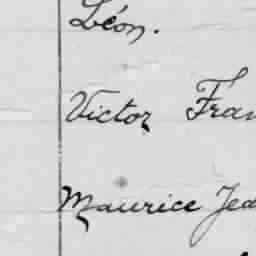 Léon.
Victor Fran
Maurice Jea